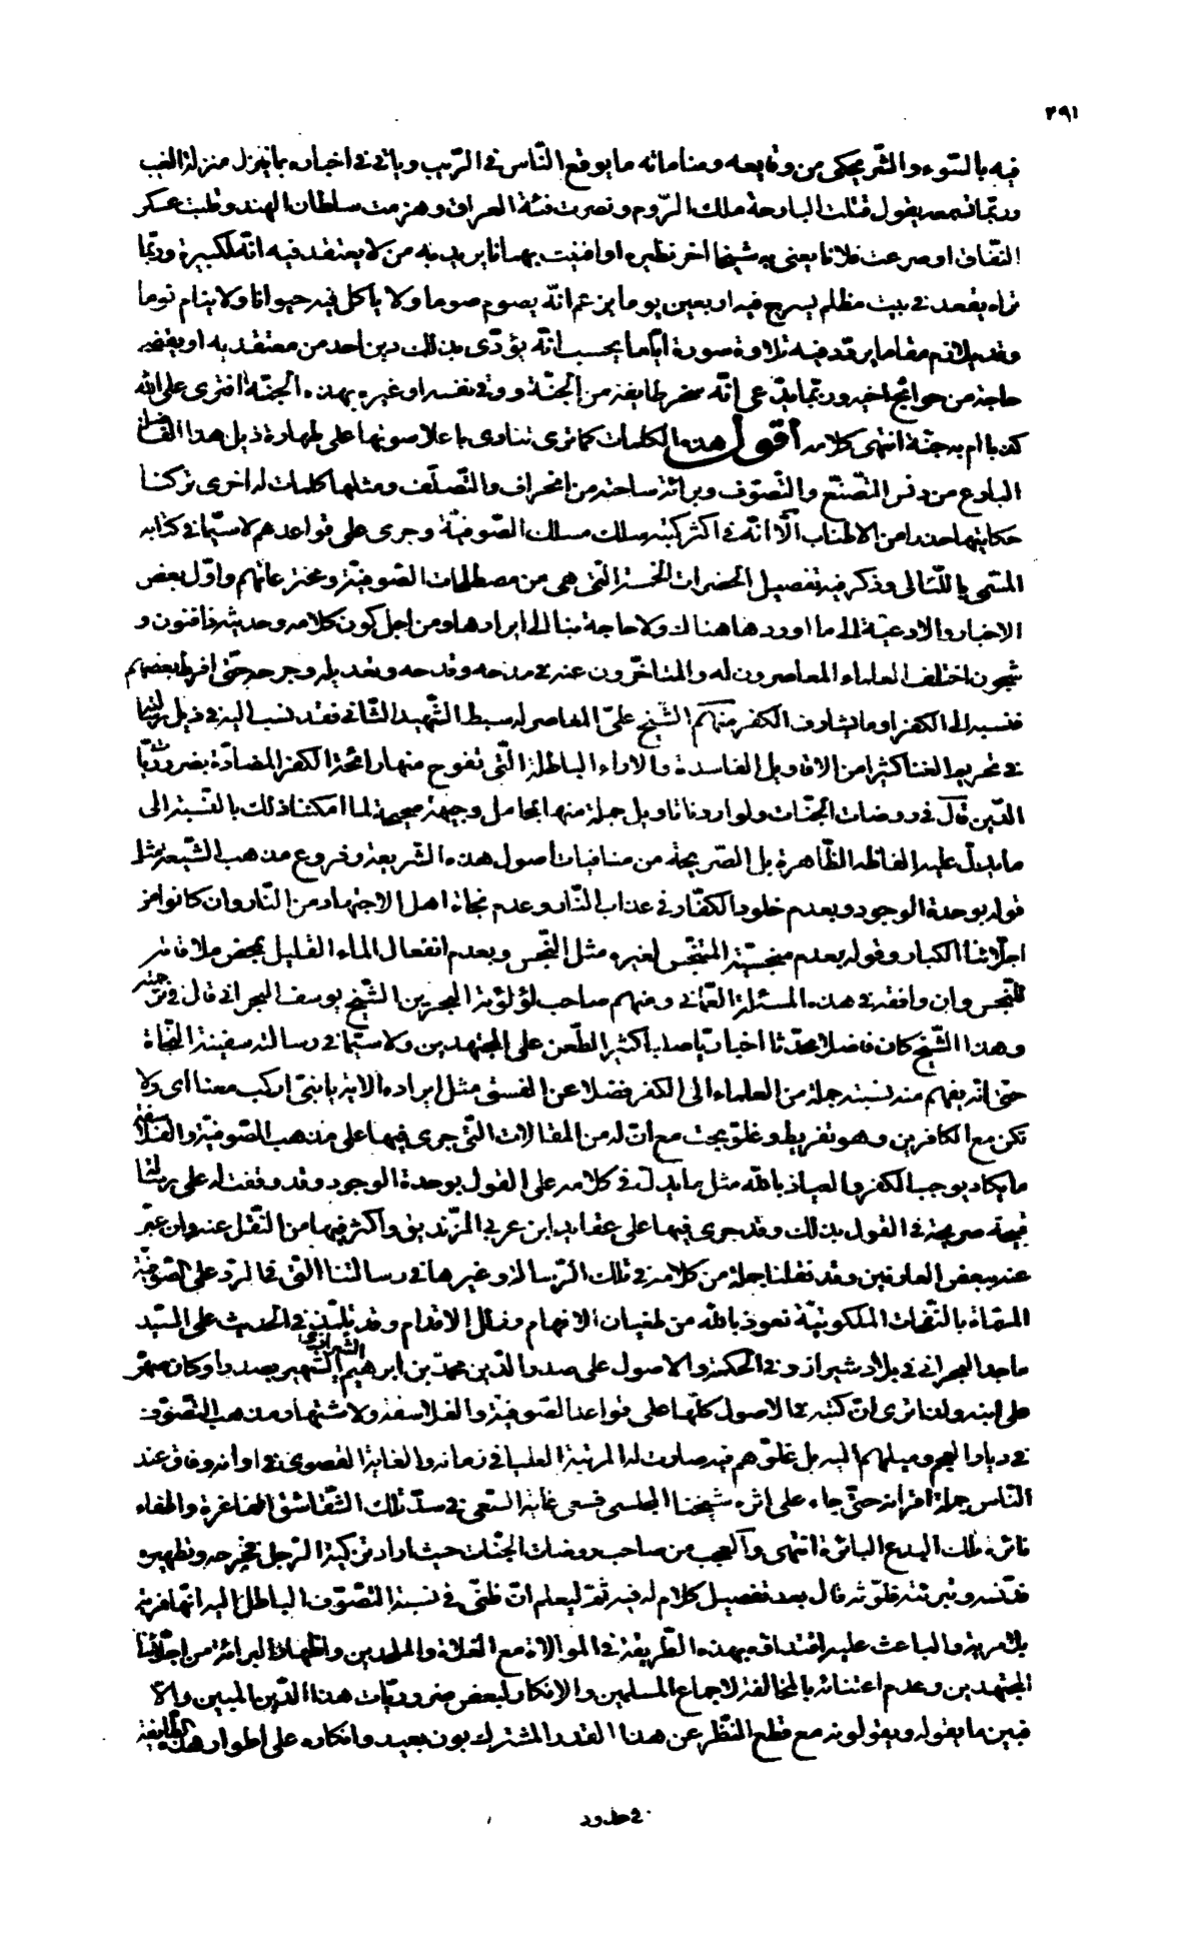 ٢٩١
فيه بالسّوء والشّر يحكى من وقايعه ومناماته ما يوقع النّاس فى الرّيب وياتى فى اخباره بما ينزل منزلة الغيب
وربّما تسمعه يقول قتلت البارحة ملك الرّوم ونصرت فئة العراق وهزمت سلطان الهند وقلبت عسكر
النّفاق او صرعت فلانا يعنى به شيخا اخر نظيره او افنيت بهمانا يريد به من لا يعتقد فيه انّه لكبيره وربّما
تراه يقعد فى بيت مظلم يسرج فيه اربعين يوما يزعم انّه يصوم صوما ولا ياكل فيه حيوانا ولا ينام نوما
وقد يلازم مقاما يردّد فيه تلاوة سورة ايّاما يحسب انّه يؤدّى بذلك دين احد من معتقديه او يقضى
حاجة من حوائج اخيه وربّما يدّعى انّه سخر طايفة من الجنّة ووقى نفسه او غيره بهذه الجنّة افترى على الله
كذبا ام به جنّة انتهى كلامه أقول هذه الكلمات كما ترى تنادى باعلا صوتها على طهارة ذيل هذا الفاضل
البارع من دنس التّصنّع والتّصوّف وبرائة ساحته من انحراف والتّصلّف ومثلها كلمات له اخرى تركنا
حكايتها حذرا من الاطناب الّا انّه فى اكثر كتبه سلك مسالك الصّوفيّة وجرى على قواعدهم لا سيّما فى كتابه
المسّمى باللّئالى وذكر فيه تفصيل الحضرات الخمسة الّتى هى من مصطلحات الصّوفيّة ومخترعاتهم واوّل بعض
الاخبار والادعيّة الى ما اوردها هناك ولا حاجة بنا الى ايرادها ومن اجل كون كلامه وحديثه ذا فنون و
شجون اختلف العلماء المعاصرون له والمتاخّرون عنه فى مدحه وقدحه وتعديله وجرحه حتّى افرط بعضهم
فنسبه الى الكفر او ما يشارف الكفر منهم الشّيخ علىّ المعاصر له سبط الشّهيد الثّانى فقد نسب اليه فى ذيل رسالته
فى تحريم الغنا كثيرا من الاقاويل الفاسدة والاراء الباطلة الّتى تفوح منها رائحة الكفر المضادّة بضروريّات
الدّين قال فى روضات الجنّات ولو اردنا تاويل جملة منها بمحامل وجيهة صحيحة لما امكننا ذلك بالنّسبة الى
ما يدلّ عليه الفاظه الظّاهرة بل الصّريحة من منافيات اصول هذه الشّريعة وفروع مذهب الشّيعة مثل
قوله بوحدة الوجود وبعدم خلود الكفّار فى عذاب النّار وعدم نجاة اهل الاجتهاد من النّار وان كانوا من
اجلّائنا الكبار وقوله بعدم منجسيّة المتنجّس لغيره مثل النّجس وبعدم انفعال الماء القليل بمحض ملاقاته
للنّجس وان وافقه فى هذه المسئلة العمّانى ومنهم صاحب لؤلؤة البحرين الشّيخ يوسف البحرانى قال فى ترجمته
وهذا الشّيخ كان فاضلا محدّثا اخباريّا صلبا كثير الطّعن على المجتهدين ولا سيّما فى رسالته سفينة النّجاة
حتّى انّه يفهم منه نسبته جملة من العلماء الى الكفر فضلا عن الفسق مثل ايراده الاية يا بنىّ اركب معنا اى ولا
تكن مع الكافرين وهو تفريط وغلوّ بحت مع انّ له من المقالات الّتى جرى فيها على مذهب الصّوفيّة والفلاسفة
ما يكاد يوجب الكفر والعياذ بالله مثل ما يدلّ فى كلامه على القول بوحدة الوجود وقد وقفت له على رسالة
قبيحة صريحة فى القول بذلك وقد جرى فيها على عقايد ابن عربى الزّنديق واكثر فيها من النّقل عنه وان عبّر
عنه ببعض العارفين وقد نقلنا جملة من كلامه فى تلك الرّسالة وغيرها فى رسالتنا الّتى فى الرّد على الصّوفيّة
المسمّاة بالنّفحات الملكوتيّة نعوذ بالله من طغيان الافهام وزلل الاقدام وقد تلمّذ فى الحديث على السّيّد
ماجد البحرانى فى بلاد شيراز وفى الحكمة والاصول على صدر الدّين محمّد بن ابرهيم الشّيرازى الشّهير بصدرا وكان صهره
على ابنته ولذا ترى انّ كتبه فى الاصول كلّها على قواعد الصّوفيّة والفلاسفة ولاشتهار مذهب التّصوّف
فى ديار العجم وميلهم اليه بل غلوّهم فيه صارت له المرتبة العليا فى زمانه والغاية القصوى فى اوانه وفاق عند
النّاس جملة اقرانه حتّى جاء على اثره شيخنا المجلسى فسعى غاية السّعى فى سدّ تلك الشّقاشق الفاغرة واطفاء
نائرة تلك البدع البائرة انتهى والعجب من صاحب روضات الجنّات حيث اراد تزكية الرّجل بجرحه وتطهيره
فدنّسه وتبرئته فلوّثه قال بعد تفصيل كلام له فيه ثمّ ليعلم انّ ظنّى فى نسبة التّصوّف الباطل اليه انّها فرية
بلا مرية والباعث عليه اقتداؤه بهذه الطّريقة فى الموالاة مع الغلاة والملحدين واظهار البرائة من اجلّائنا
المجتهدين وعدم اعتنائه بالمخالفة لاجماع المسلمين والانكار لبعض ضروريّات هذا الدّين المبين والّا
فبين ما يقوله ويقولونه مع قطع النّظر عن هذا القدر المشترك بون بعيد وانكاره على اطوار هذه الطّايفة
فى حدود